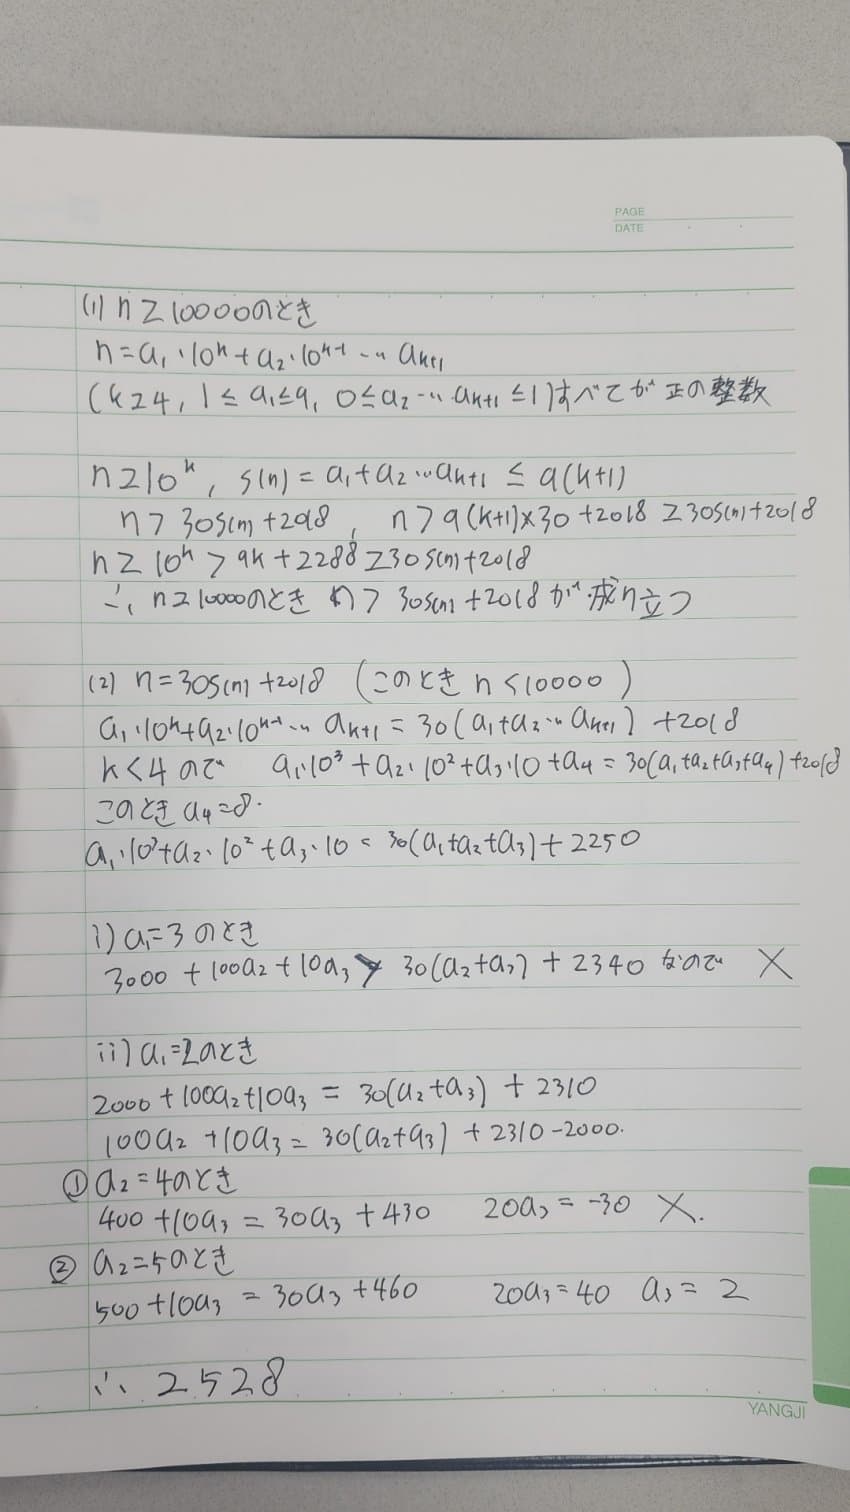 PAGE
DATE
(1) n≧10000のとき
n=a₁・10ᵏ+a₂・10ᵏ⁻¹… aₖ₊₁
(k≧4, 1≦a₁≦9, 0≦a₂…aₖ₊₁≦1)すべてが正の整数
n≧10ᵏ, S(n)=a₁+a₂…aₖ₊₁≦9(k+1)
n>30S(n)+2018, n>9(k+1)×30+2018≧30S(n)+2018
n≧10ᵏ>9k+2288≧30S(n)+2018
∴, n≧10000のとき n>30S(n)+2018が成り立つ
(2) n=30S(n)+2018 (このときn<10000)
a₁・10ᵏ+a₂・10ᵏ⁻¹… aₖ₊₁=30(a₁+a₂…aₖ₊₁)+2018
k<4ので a₁・10³+a₂・10²+a₃・10+a₄=30(a₁+a₂+a₃+a₄)+2018
このときa₄=8.
a₁・10³+a₂・10²+a₃・10=30(a₁+a₂+a₃)+2250
i) a₁=3のとき
3000+100a₂+10a₃>30(a₂+a₃)+2340なので ×
ii) a₁=2のとき
2000+100a₂+10a₃=30(a₂+a₃)+2310
100a₂+10a₃=30(a₂+a₃)+2310-2000.
① a₂=4のとき
400+10a₃=30a₃+430 20a₃=-30 ×.
② a₂=5のとき
500+10a₃=30a₃+460 20a₃=40 a₃=2
∴ 2528
YANGJI